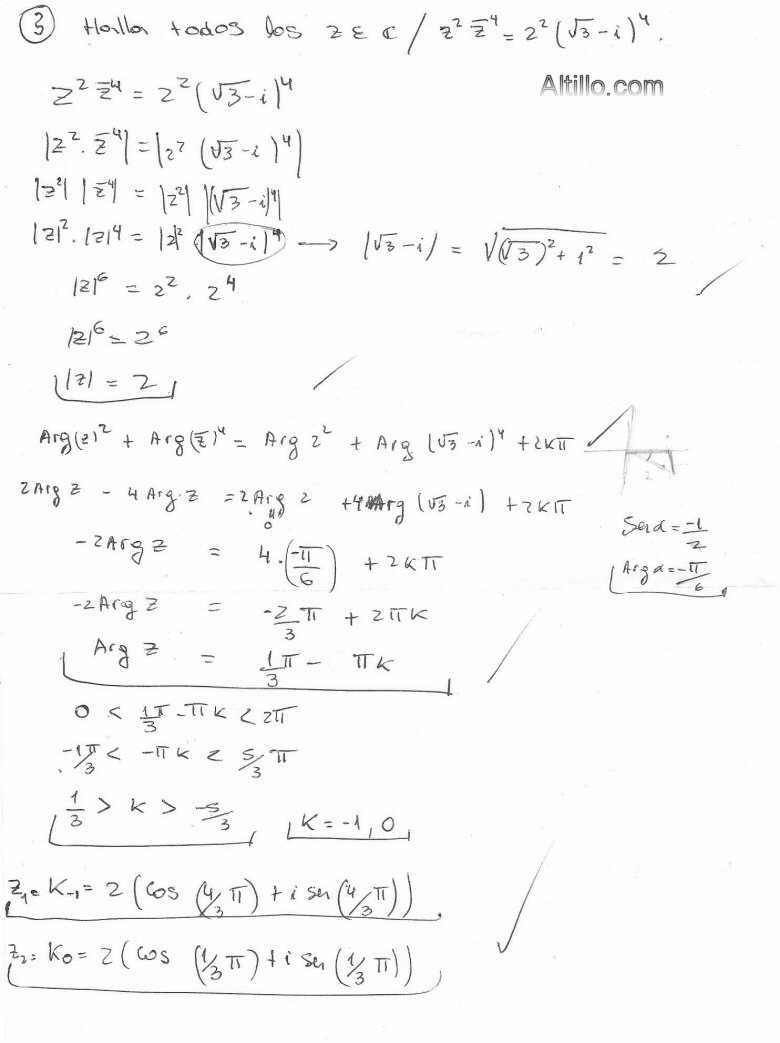 3 Halla todos los z ∈ ℂ / z² z̄⁴ = 2² (√3 - i)⁴.
Altillo.com
z² z̄⁴ = 2² (√3 - i)⁴
|z². z̄⁴| = |2² (√3 - i)⁴|
|z²| |z̄⁴| = |2²| |(√3 - i)⁴|
|z|². |z|⁴ = |2|² |√3 - i|⁴ → |√3 - i| = √((√3)² + 1²) = 2
|z|⁶ = 2² . 2⁴
|z|⁶ = 2⁶
|z| = 2
Arg(z)² + Arg(z̄)⁴ = Arg 2² + Arg (√3 - i)⁴ + 2kπ
2 Arg z - 4 Arg z = 2 Arg 2 + 4 Arg (√3 - i) + 2kπ
0
-2 Arg z = 4 . (-π/6) + 2kπ
Sen α = -1/2
Arg α = -π/6
-2 Arg z = -2/3 π + 2πk
Arg z = 1/3 π - πk
0 < 1/3 π - πk < 2π
-1/3 π < -πk < 5/3 π
1/3 > k > -5/3 K = -1, 0
z₁ = K₋₁ = 2 (cos (4/3 π) + i sen (4/3 π))
z₂ = K₀ = 2 (cos (1/3 π) + i sen (1/3 π))